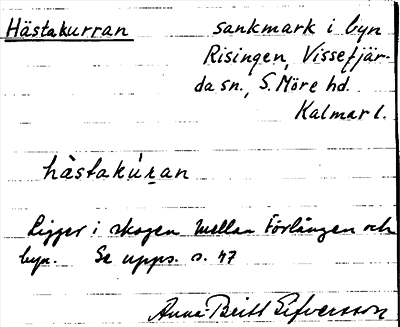 Hästakurran sankmark i byn
Risingen, Vissefjär-
da sn., S. Möre hd.
Kalmar l.
hàstakúran
Ligger i skogen mellan Förlången och
byn. Se upps. s. 47
Anna-Britt Elfversson